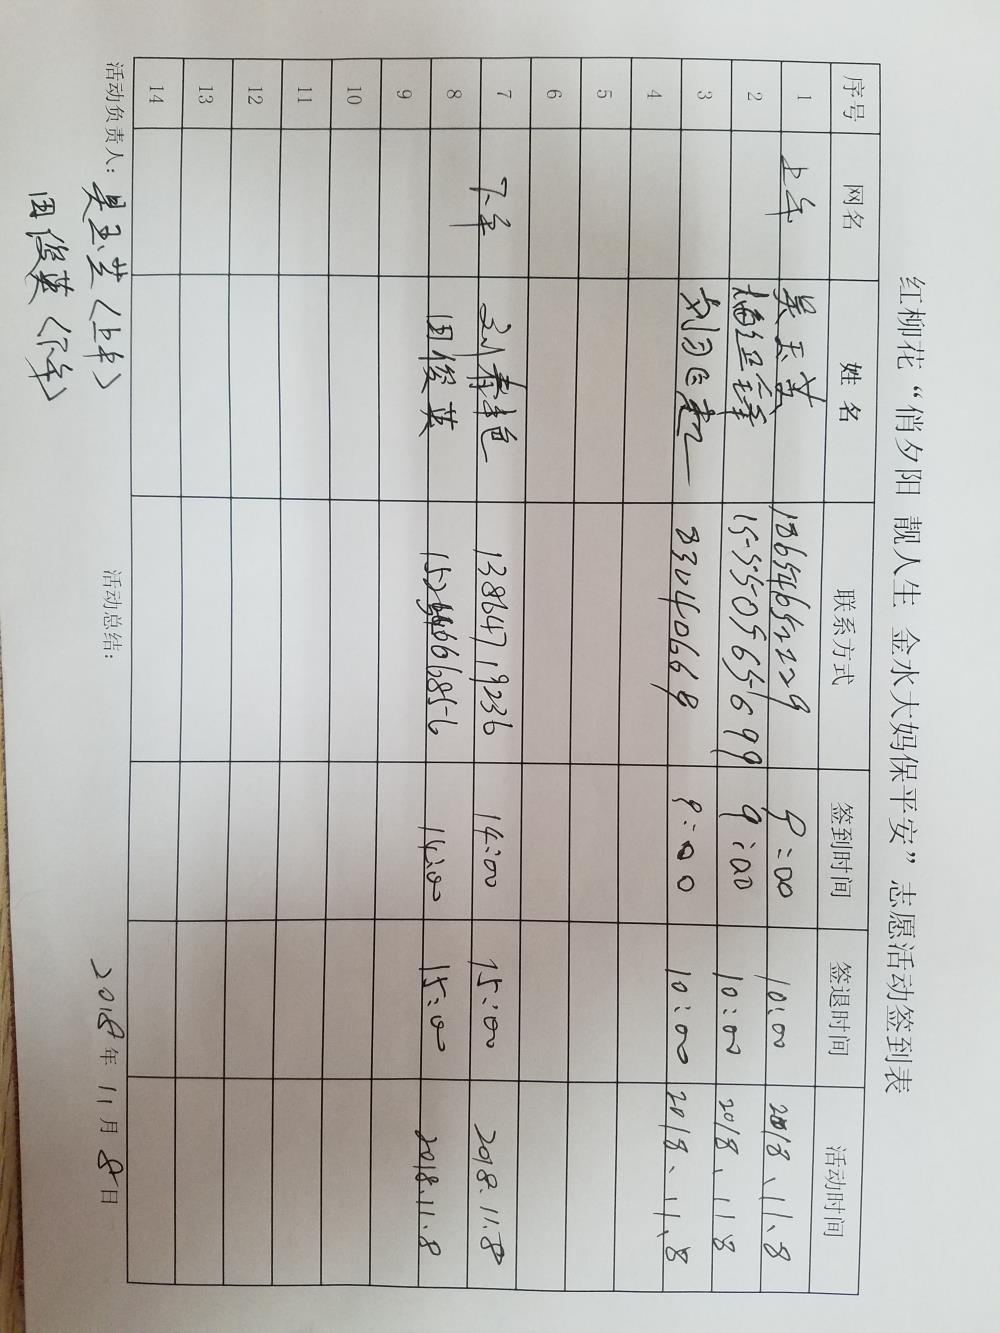 红柳花“俏夕阳 靓人生 金水大妈保平安”志愿活动签到表
序号 网名 姓名 联系方式 签到时间 签退时间 活动时间
1 上午 吴玉芝 13654652229 9:00 10:00 2018、11、8
2 15550565699 9:00 10:00 2018、11 8
3 8304066 9:00 10:00 2018、11、8
4
5
6
7 下午 刘春色 13864719236 14:00 15:00 2018.11.8
8 田俊英 14:00 15:00 2018.11.8
9
10
11
12
13
14
活动负责人: 吴玉芝(上午) 活动总结: 2018年11月8日
田俊英(下午)